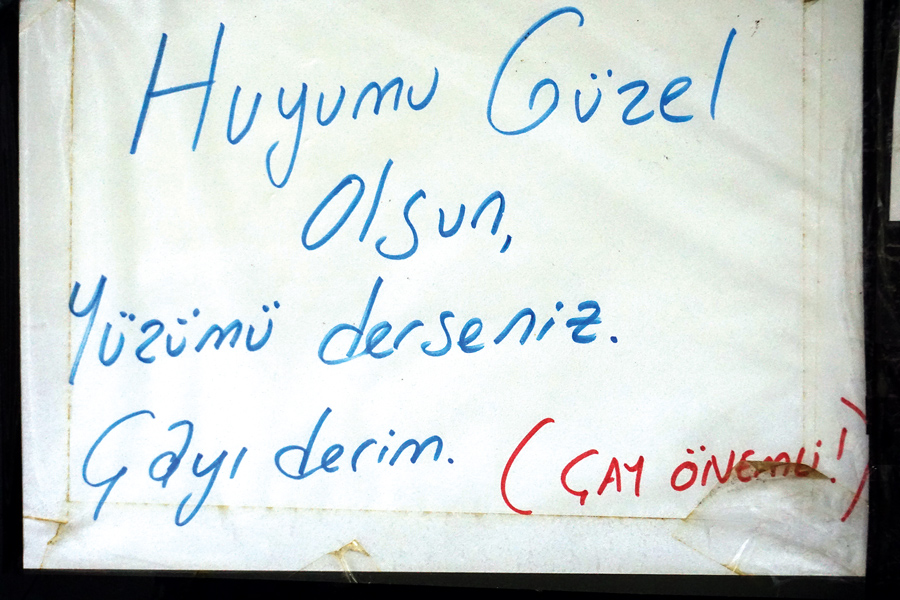 Huyumu Güzel
Olsun,
Yüzümü derseniz.
Çayı derim. (ÇAY ÖNEMLİ!)